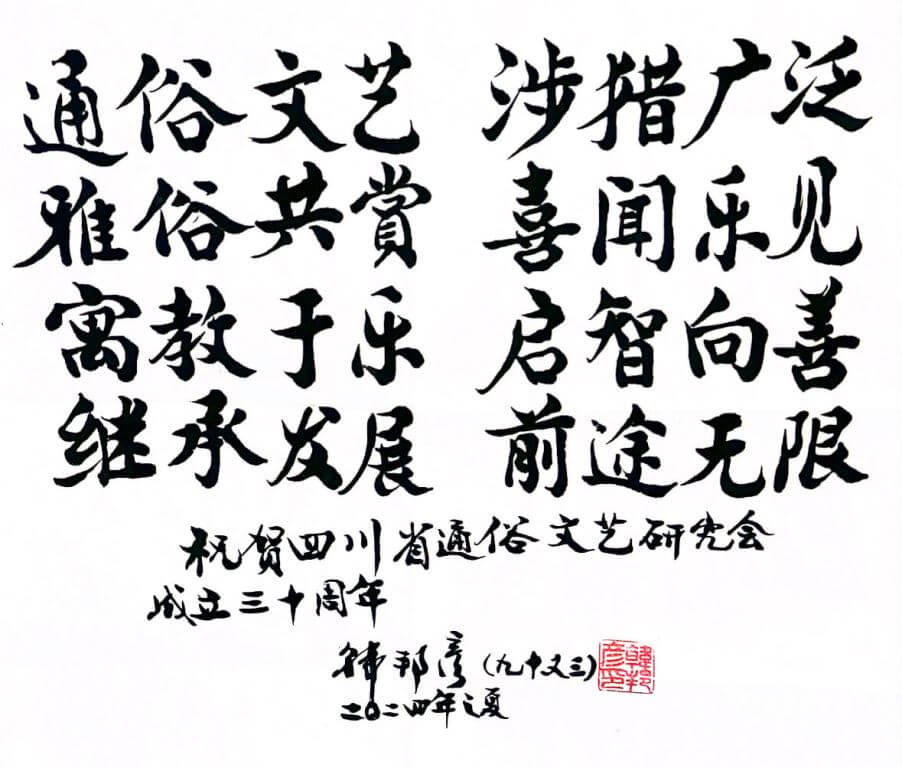 通俗文艺 涉猎广泛
雅俗共赏 喜闻乐见
寓教于乐 启智向善
继承发展 前途无限
祝贺四川省通俗文艺研究会
成立三十周年
韩邦彦(九十又三)
二〇二四年之夏
韓邦彦印